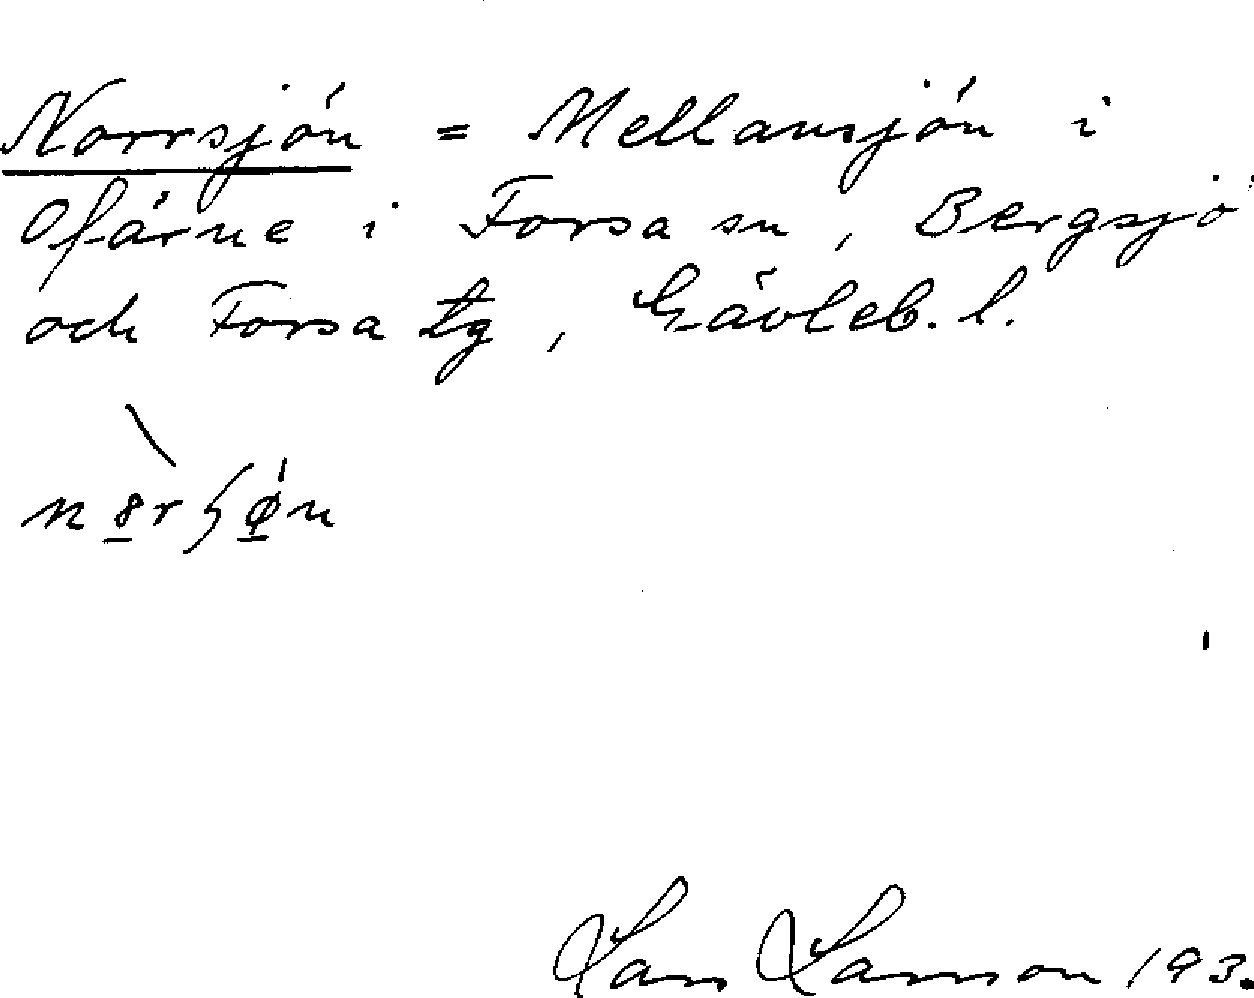 Norrsjön = Mellansjön i
Ofärne i Forsa sn, Bergsjö
och Forsa tg, Gävleb. l.
Lars Larsson 193